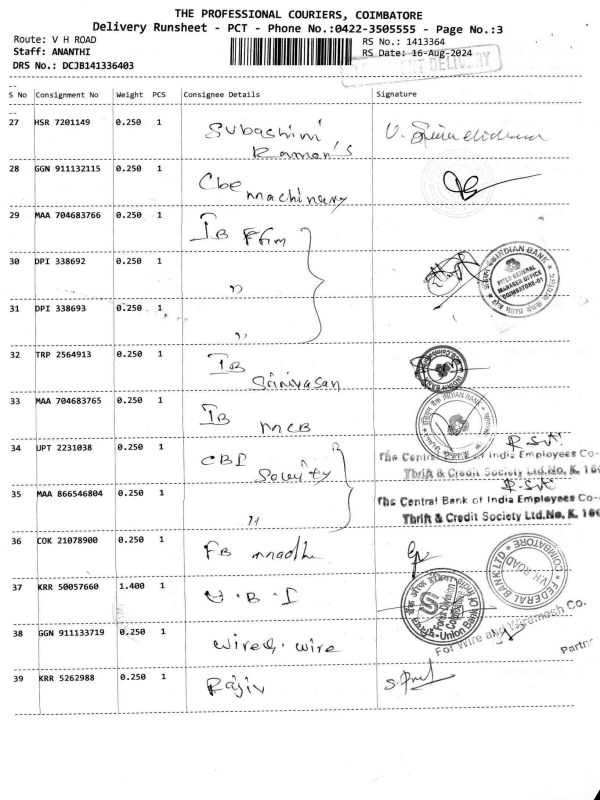 THE PROFESSIONAL COURIERS, COIMBATORE
Delivery Runsheet - PCT - Phone No.:0422-3505555 - Page No.:3
Route: V H ROAD
RS No.: 1413364
Staff: ANANTHI
RS Date: 16-Aug-2024
DRS No.: DCJB141336403
DELIVERY
S No Consignment No Weight PCS Consignee Details Signature
27 HSR 7201149 0.250 1 Subashini
Raman's
28 GGN 911132115 0.250 1 Cbe
machinary
29 MAA 704683766 0.250 1 IB FGM
30 DPI 338692 0.250 1 "
INDIAN BANK
FIELD GENERAL
MANAGER OFFICE
COIMBATORE-01
31 DPI 338693 0.250 1 "
32 TRP 2564913 0.250 1 IB
Srinivasan
33 MAA 704683765 0.250 1 IB
MCB
INDIAN BANK
34 UPT 2231038 0.250 1 CBI
The Central Bank of India Employees Co-
Thrift & Credit Society Ltd.No. K. 
35 MAA 866546804 0.250 1 "
The Central Bank of India Employees Co-
Thrift & Credit Society Ltd.No. K. 
36 COK 21078900 0.250 1 FB
FEDERAL BANK LTD
VH ROAD
COIMBATORE
37 KRR 50057660 1.400 1 U.B.I
Union Bank Of
38 GGN 911133719 0.250 1 wire & wire
For Wire and Wiremesh Co.
Partn
39 KRR 5262988 0.250 1 Rajiv